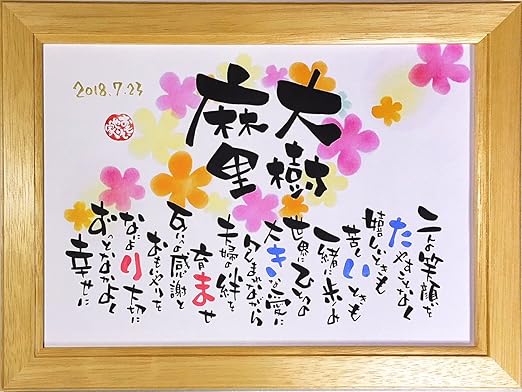 2018.7.23
大樹
麻里
二人の笑顔を
たやすことなく
嬉しいときも
苦しいときも
一緒に歩み
世界に一つの
大きな愛に
つつまれながら
夫婦の絆を
育ませ
互いの感謝と
おもいやりを
なにより大切に
ずっとなかよく
幸せに